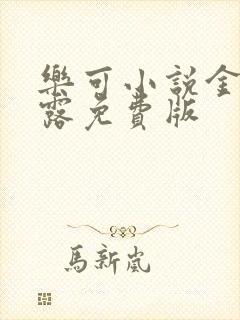 樂可小說金
露免費版
馬新嵐